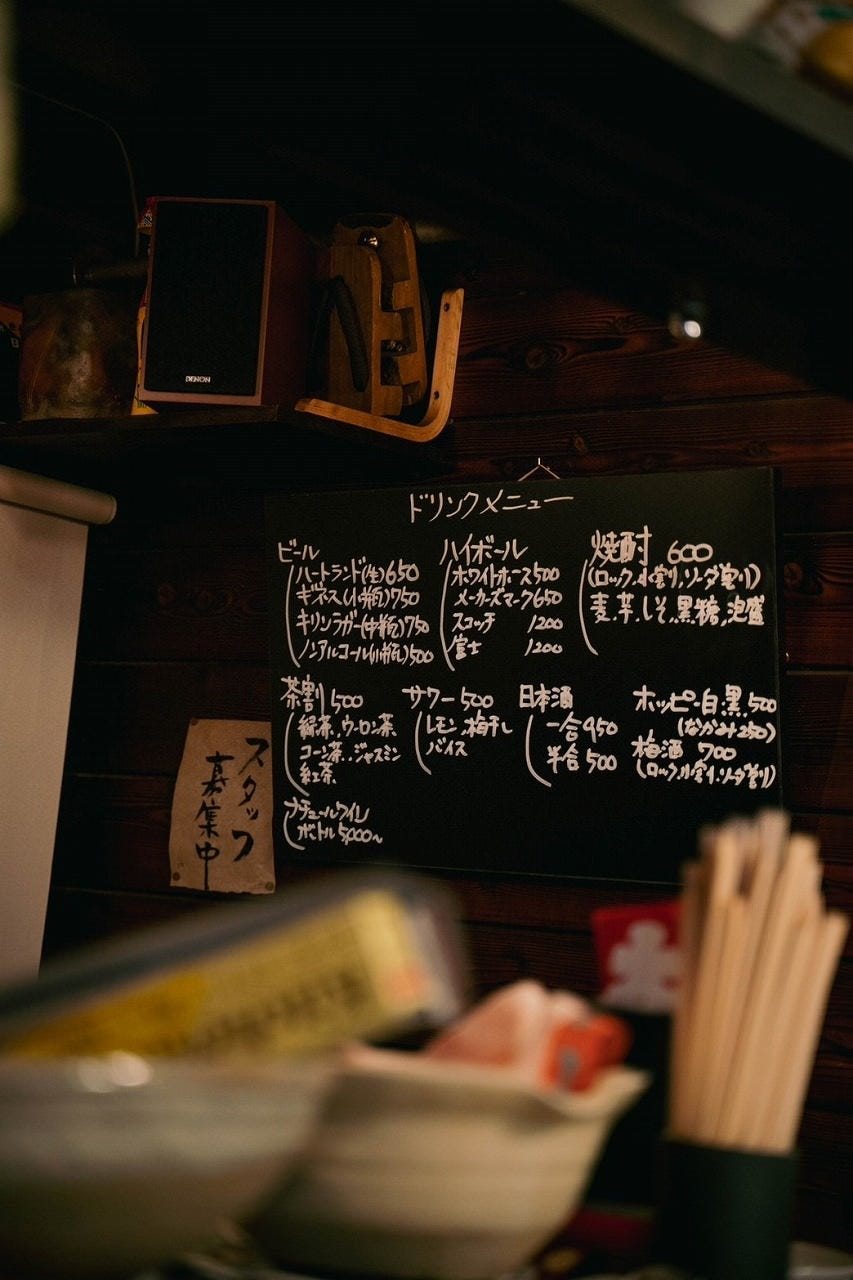 DENON
ドリンクメニュー
ビール
ハートランド(生)650
ギネス(小瓶)750
キリンラガー(中瓶)750
ノンアルコール(小瓶)500
ハイボール
ホワイトホース500
メーカーズマーク650
スコッチ 1200
富士 1200
焼酎 600
(ロック,水割り,ソーダ割り)
麦,芋,しそ,黒糖,泡盛
茶割 500
緑茶,ウーロン茶
コーン茶,ジャスミン
紅茶
サワー 500
レモン,梅干し
バイス
日本酒
一合 950
半合 500
ホッピー白黒 500
(なかみ250)
梅酒 700
(ロック,水割り,ソーダ割り)
ナチュールワイン
ボトル5,000~
スタッフ
募集中